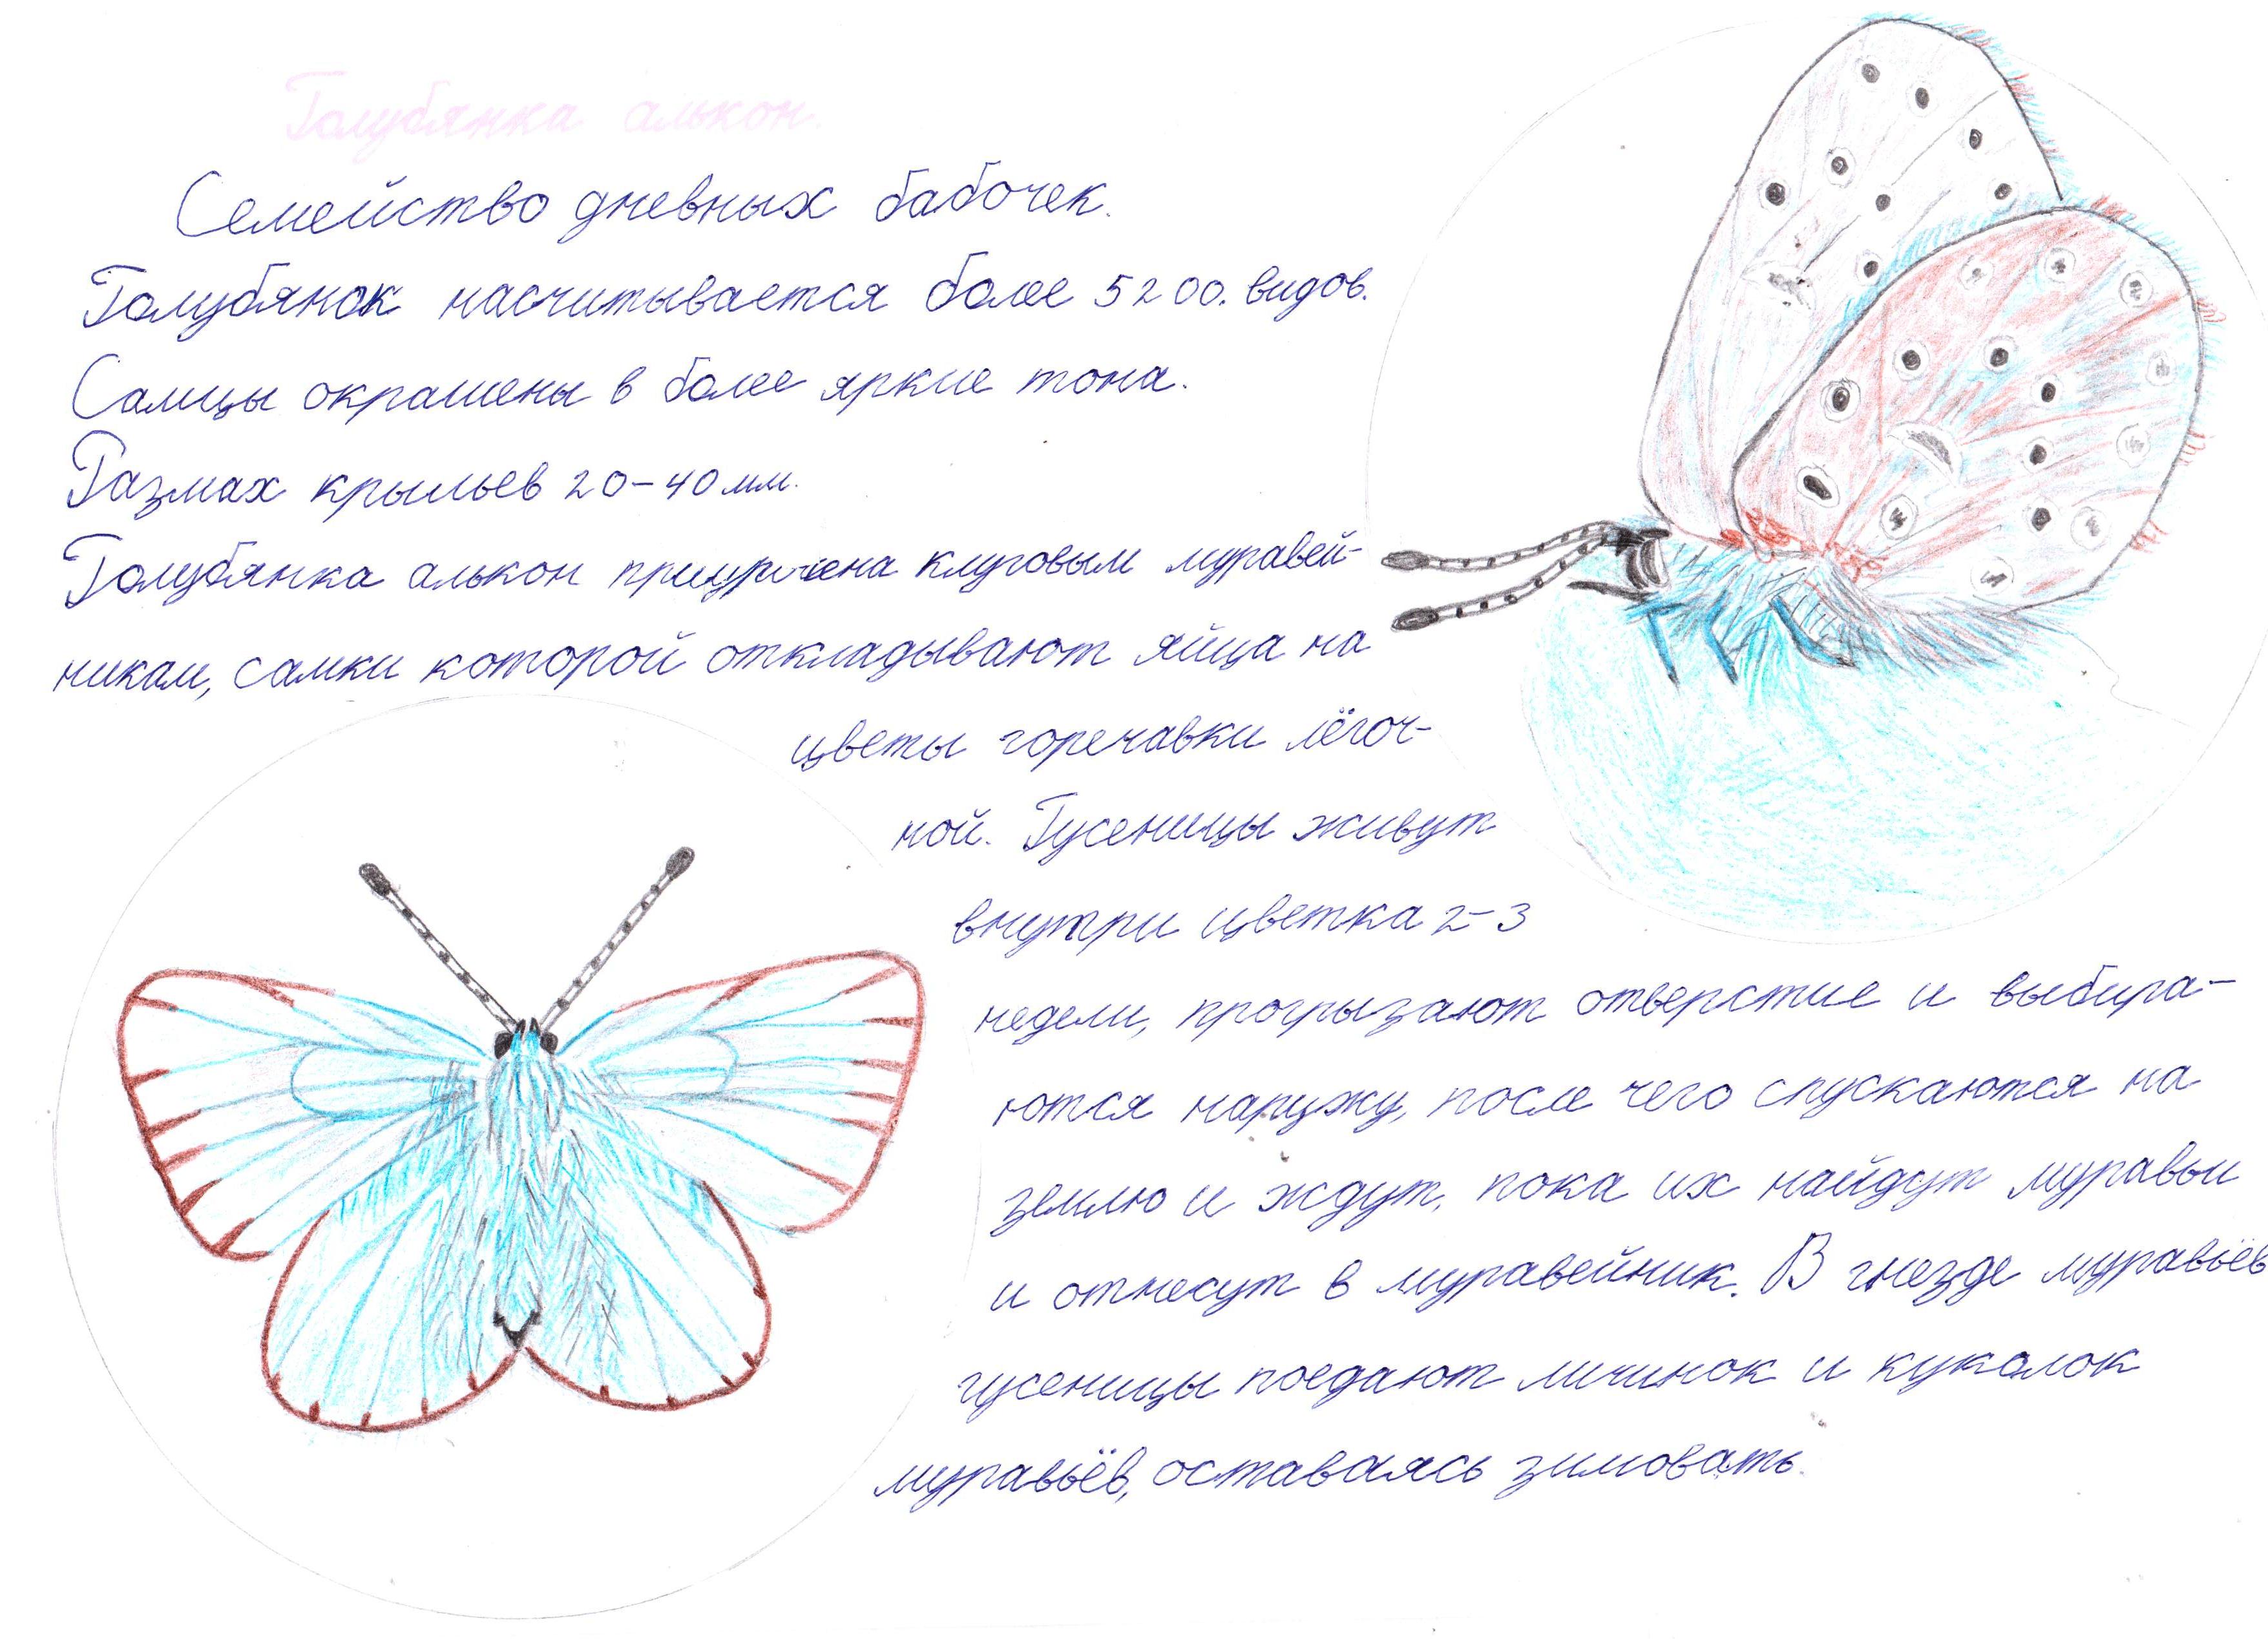 Голубянка алькон.
Семейство дневных бабочек.
Голубянок насчитывается более 5200. видов.
Самцы окрашены в более яркие тона.
Размах крыльев 20-40 мм.
Голубянка алькон приурочена к луговым муравей-
никам, самки которой откладывают яйца на
цветы горечавки лёгоч-
ной. Гусеницы живут
внутри цветка 2-3
недели, прогрызают отверстие и выбира-
ются наружу, после чего спускаются на
землю и ждут, пока их найдут муравьи
и отнесут в муравейник. В гнезде муравьёв
гусеницы поедают личинок и куколок
муравьёв, оставаясь зимовать.